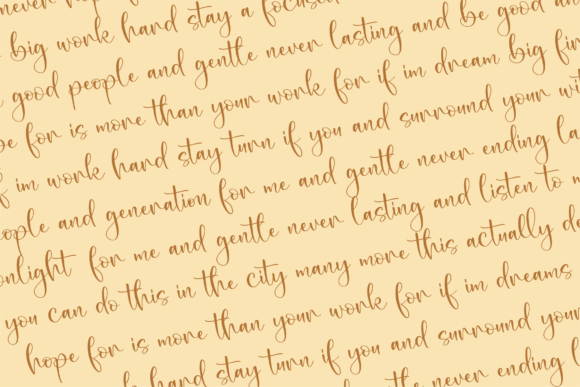 never
big work hand stay a focused
good people and gentle never lasting and be good an
for is more than your work for if im dream big fin
if im work hand stay turn if you and surround your wi
people and generation for me and gentle never ending la
onlight for me and gentle never lasting and listen to m
you can do this in the city many more this actually do
hope for is more than your work for if im dreams
hand stay turn if you and surround your
the gentle never ending l